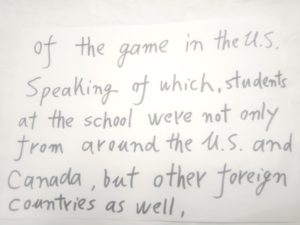 of the game in the U.S.
Speaking of which, students
at the school were not only
from around the U.S. and
Canada, but other foreign
countries as well,